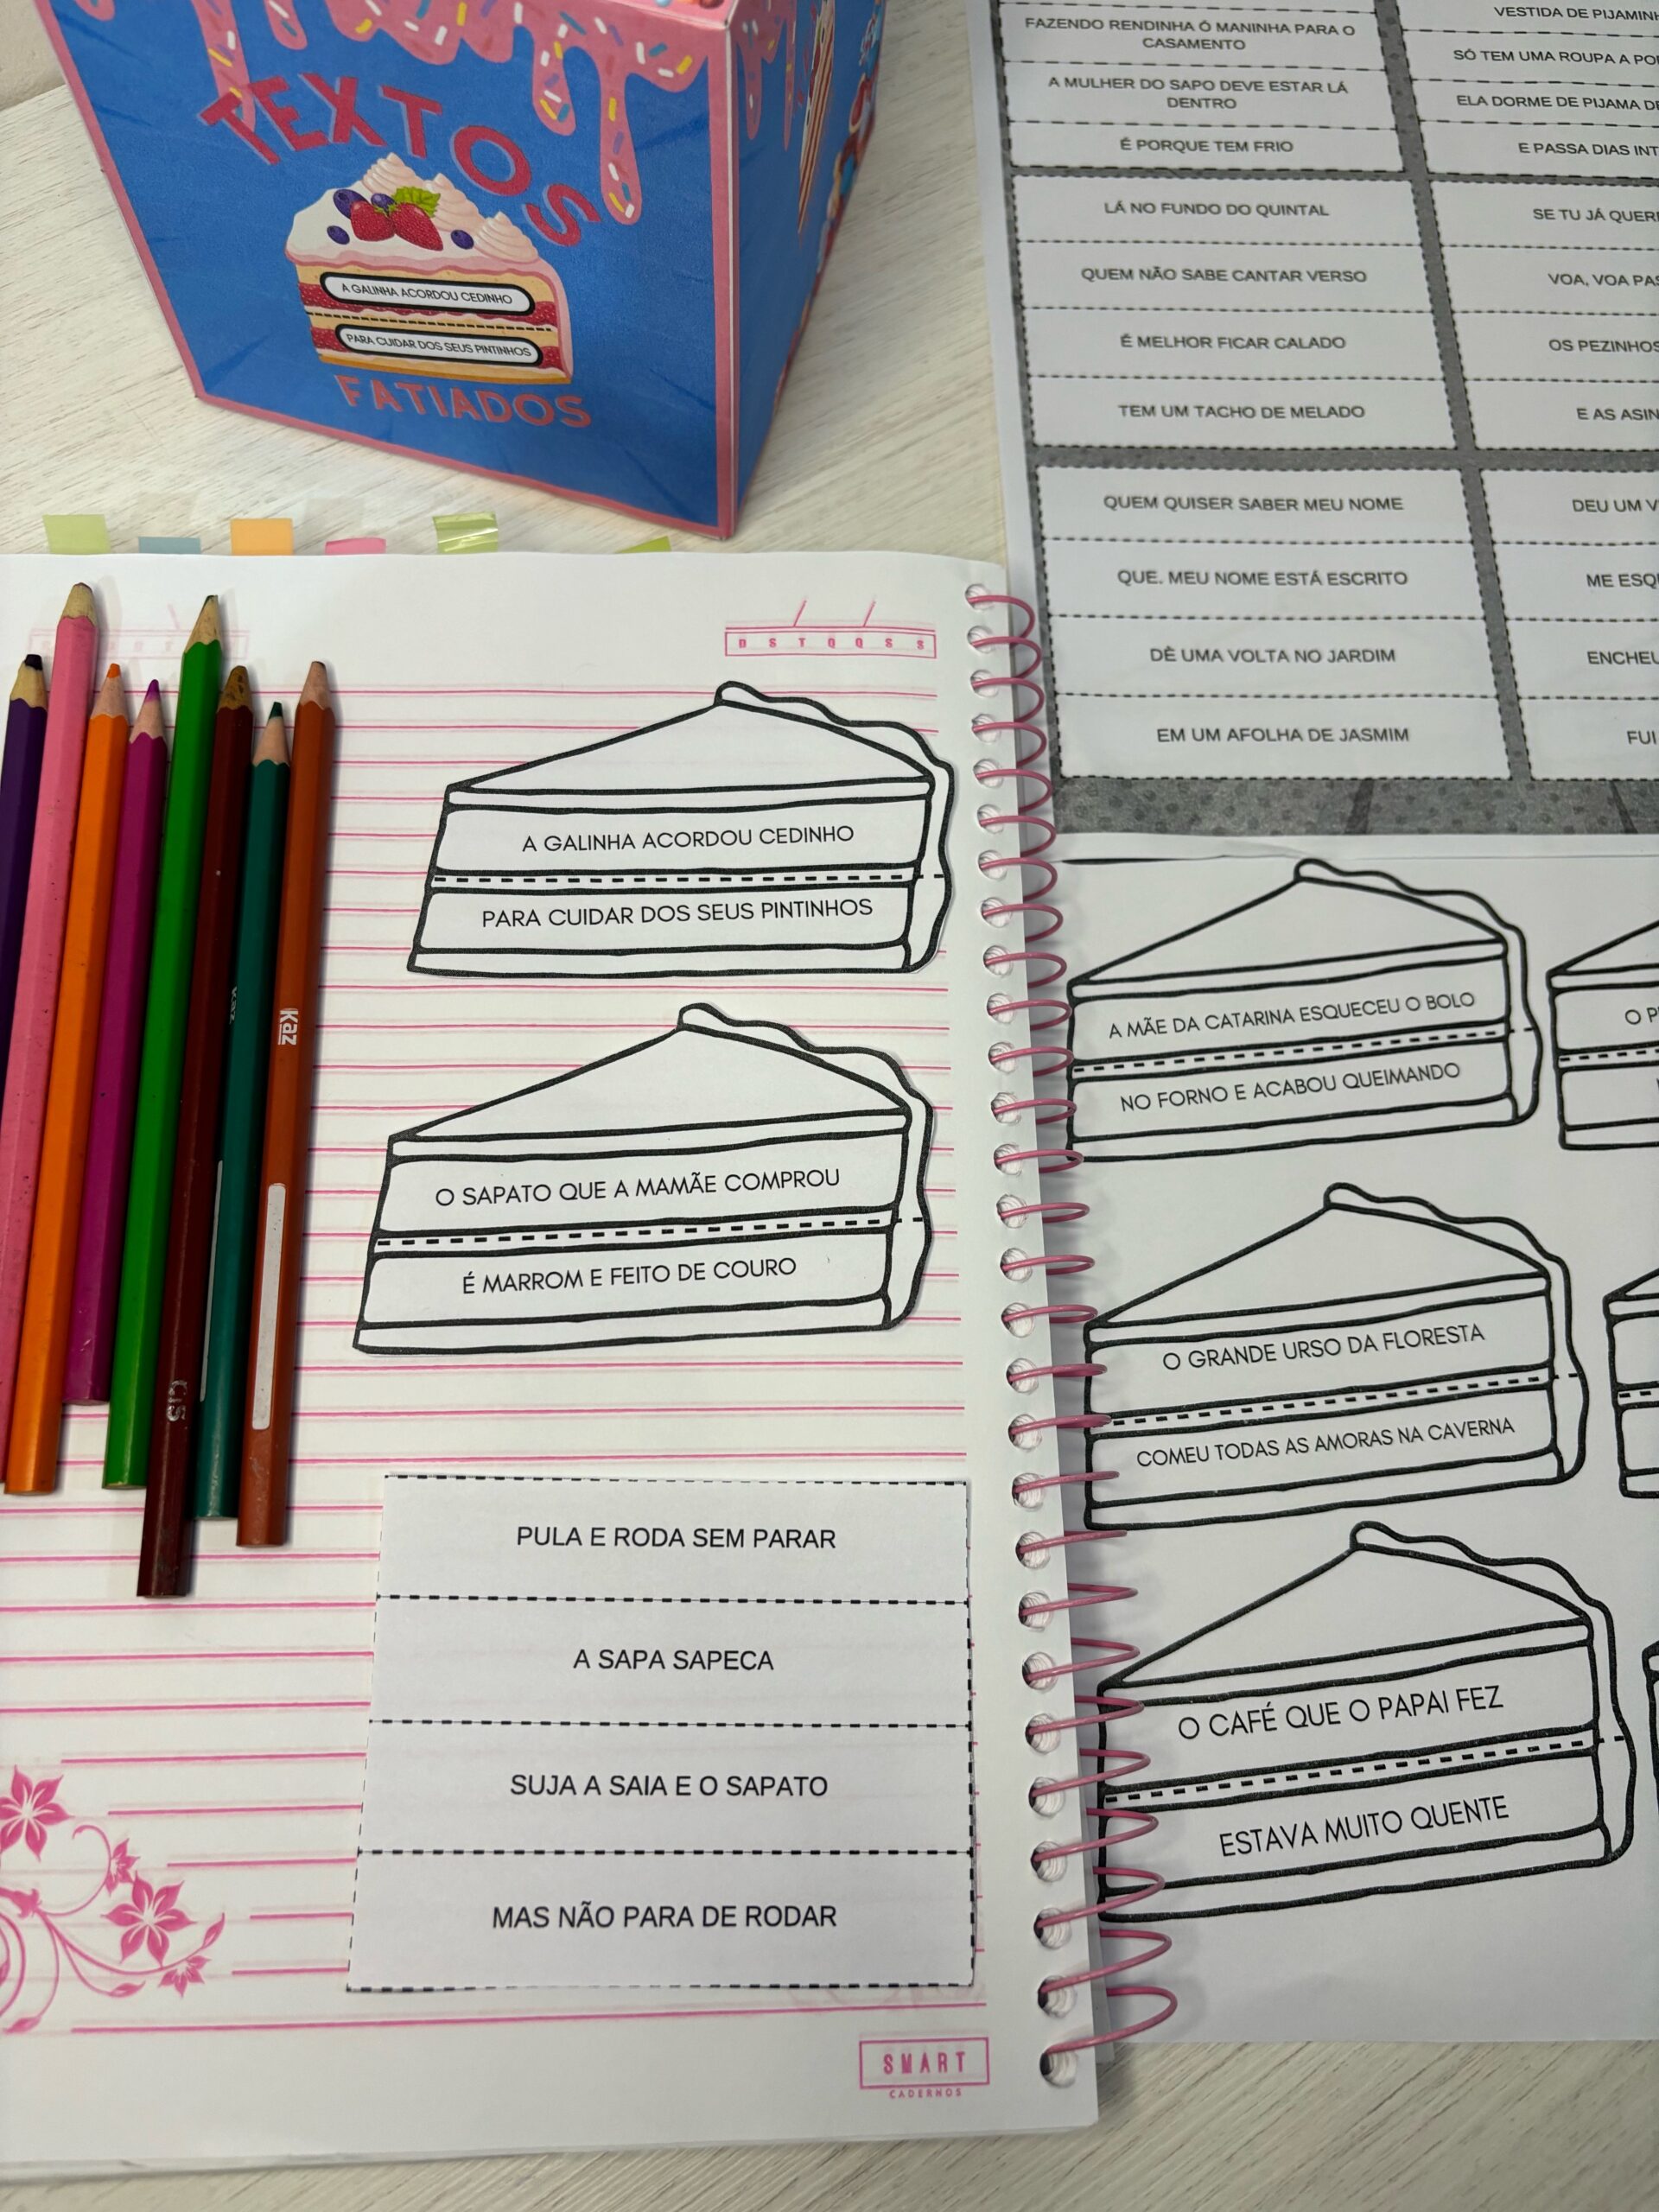 TEXTOS
A GALINHA ACORDOU CEDINHO
PARA CUIDAR DOS SEUS PINTINHOS
FATIADOS
FAZENDO RENDINHA Ó MANINHA PARA O
CASAMENTO
A MULHER DO SAPO DEVE ESTAR LÁ
DENTRO
É PORQUE TEM FRIO
LÁ NO FUNDO DO QUINTAL
QUEM NÃO SABE CANTAR VERSO
É MELHOR FICAR CALADO
TEM UM TACHO DE MELADO
QUEM QUISER SABER MEU NOME
QUE. MEU NOME ESTÁ ESCRITO
DÊ UMA VOLTA NO JARDIM
EM UM AFOLHA DE JASMIM
VESTIDA DE
SÓ TEM UMA ROUPA A
ELA DORME DE PIJAMA
E PASSA DIAS
SE TU JÁ
VOA, VOA
OS
E AS
DEU UM
ME
FUI
D S T Q Q S S
A GALINHA ACORDOU CEDINHO
PARA CUIDAR DOS SEUS PINTINHOS
O SAPATO QUE A MAMÃE COMPROU
É MARROM E FEITO DE COURO
PULA E RODA SEM PARAR
A SAPA SAPECA
SUJA A SAIA E O SAPATO
MAS NÃO PARA DE RODAR
SMART
CADERNOS
Kaz
CiS
A MÃE DA CATARINA ESQUECEU O BOLO
NO FORNO E ACABOU QUEIMANDO
O GRANDE URSO DA FLORESTA
COMEU TODAS AS AMORAS NA CAVERNA
O CAFÉ QUE O PAPAI FEZ
ESTAVA MUITO QUENTE
O